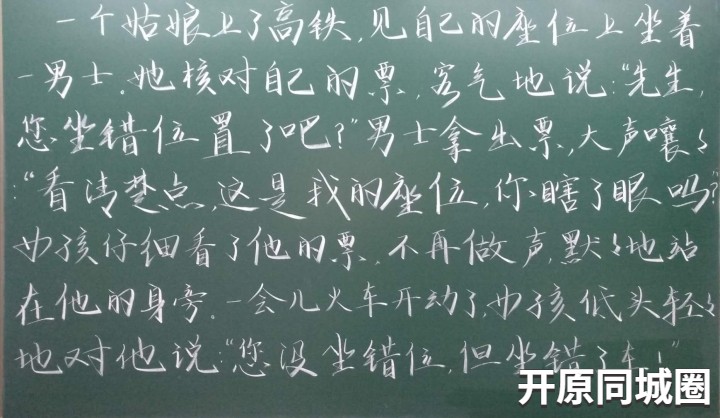 一个姑娘上了高铁,见自己的座位上坐着
一男士。她核对自己的票,客气地说:“先生,
您坐错位置了吧?”男士拿出票,大声嚷々
:“看清楚点,这是我的座位,你瞎了眼吗?”
女孩仔细看了他的票,不再做声,默々地站
在他的身旁。一会儿火车开动了,女孩低头轻々
地对他说:“您没坐错位,但坐错了车!”
开原同城圈